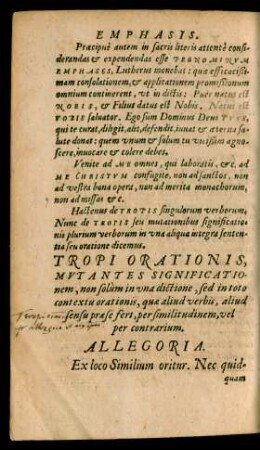 EMPHASIS.
Præcipuè autem in sacris literis attentè consi-
derandas & expendendas esse PRONOMINVM
EMPHASES, Lutherus monebat: quæ efficacissi-
mam consolationem, & applicationem promissionum
omnium continerent, vt in dictis: Puer natus est
NOBIS, & Filius datus est Nobis. Natus est
VOBIS saluator. Ego sum Dominus Deus TVVS,
qui te curat, diligit, alit, defendit, iuuat & æterna sa-
lute donat: quem vnum & solum tu vicissim agno-
scere, inuocare & colere debes.
Venite ad ME omnes, qui laboratis &c. ad
ME CHRISTVM confugite, non ad sanctos, non
ad vestra bona opera, non ad merita monachorum,
non ad missas & c.
Hactenus de TROPIS singulorum verborum,
Nunc de TROPIS seu mutationibus significatio-
nis plurium verborum in vna aliqua integra senten-
tia seu oratione dicemus.
TROPI ORATIONIS,
MVTANTES SIGNIFICATIO-
nem, non solùm in vna dictione, sed in toto
contextu orationis, quæ aliud verbis, aliud
sensu præse fert, per similitudinem, vel
per contrarium.
ALLEGORIA.
Ex loco Similium oritur. Nec quid-
quam